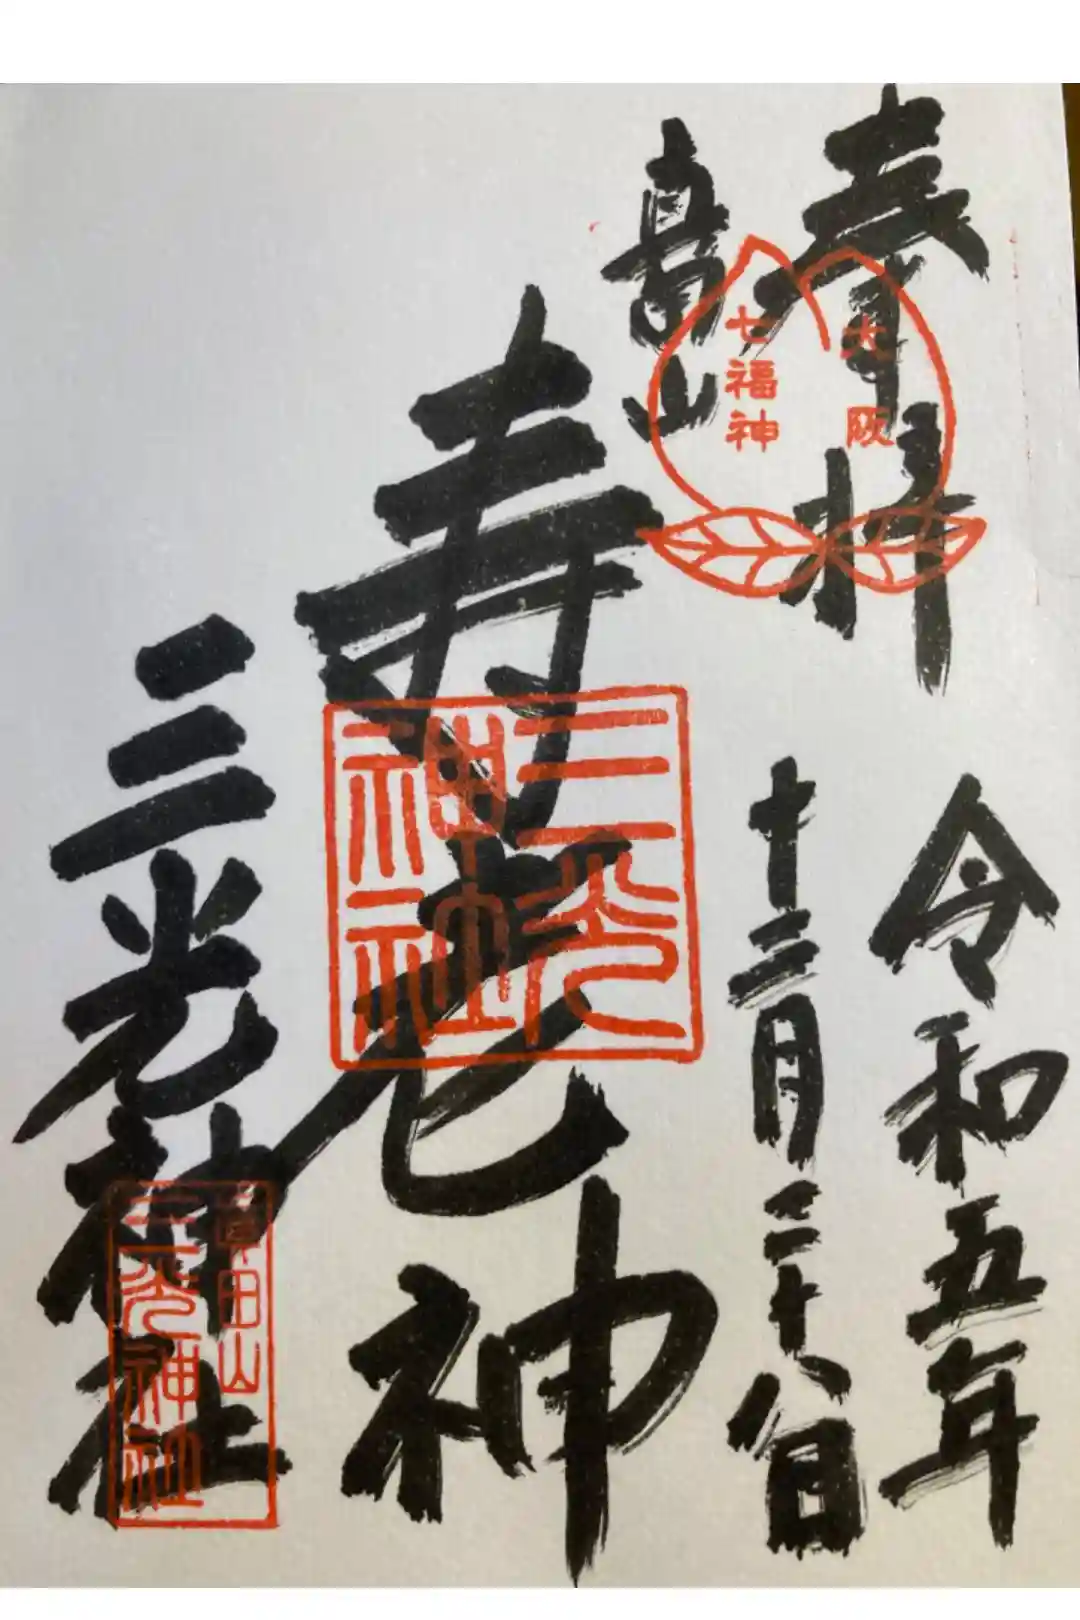 奉拝
大阪
七福神
令和五年
十二月二十八日
寿老神
三光
神社
三光神社
真田山
三光神社